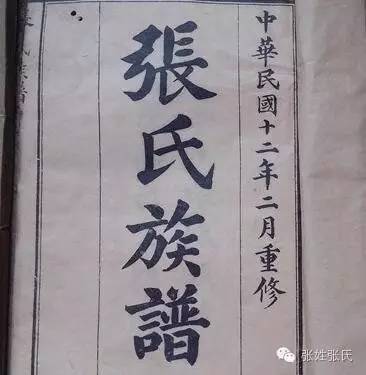 中華民國十二年二月重修
張氏族譜
张姓张氏